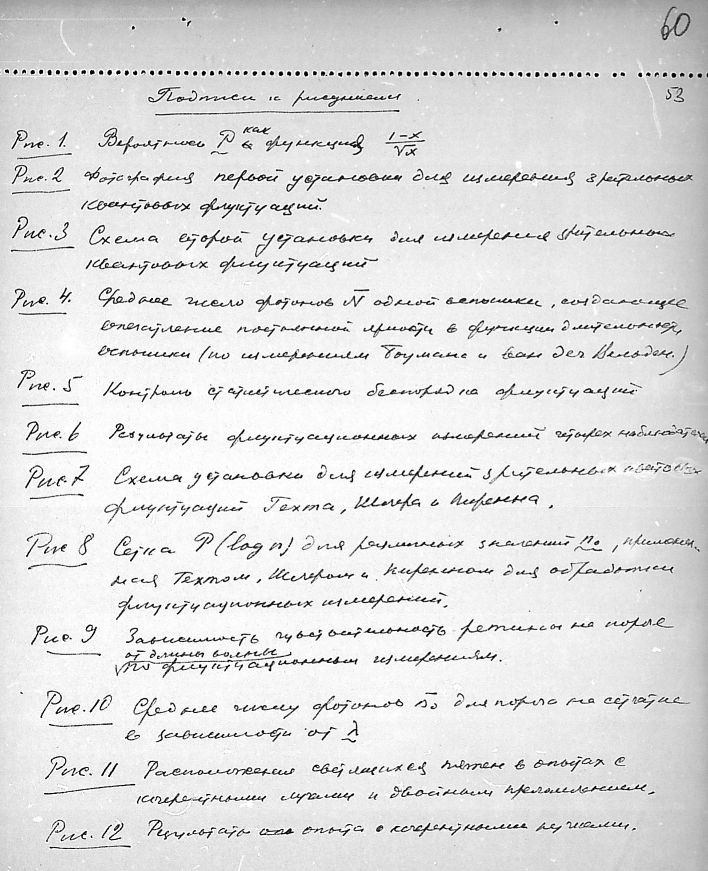 60
Подписи к рисункам.
53
Рис. 1. Вероятность P как функция 1-x/√x
Рис. 2 Фотография первой установки для измерения зрительных
квантовых флуктуаций.
Рис. 3 Схема второй установки для измерения зрительных
квантовых флуктуаций
Рис. 4. Среднее число фотонов N одной вспышки, создающее
впечатление постоянной яркости в функции длительности
вспышки (по измерениям Боумана и ван дер Вельден.)
Рис. 5 Контроль статистического беспорядка флуктуаций
Рис. 6 Результаты флуктуационных измерений четырех наблюдателей
Рис. 7 Схема установки для измерений зрительных квантовых
флуктуаций Гехта, Шлера и Пиренна.
Рис 8 Сетка P (log n) для различных значений n₀, применен-
ная Гехтом, Шлером и Пиренном для обработки
флуктуационных измерений.
Рис. 9 Зависимость чувствительность ретины на пороге
от длины волны
√по флуктуационным измерениям.
Рис. 10 Среднее число фотонов n₀ для порога на сетчатке
в зависимости от λ
Рис. 11 Расположение светящихся пятен в опытах с
когерентными лучами и двойным преломлением.
Рис. 12 Результаты опыта с когерентными пучками.